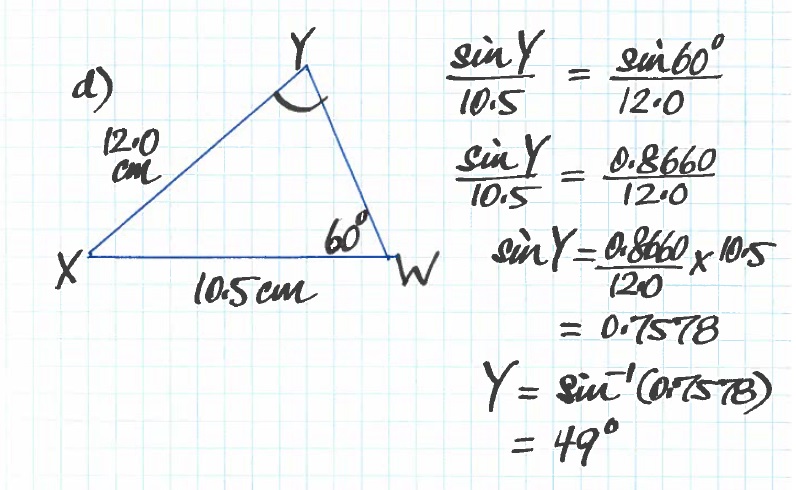 d)
Y
12.0
cm
X
60°
W
10.5 cm
sin Y / 10.5 = sin 60° / 12.0
sin Y / 10.5 = 0.8660 / 12.0
sin Y = 0.8660 / 12.0 x 10.5
= 0.7578
Y = sin⁻¹(0.7578)
= 49°